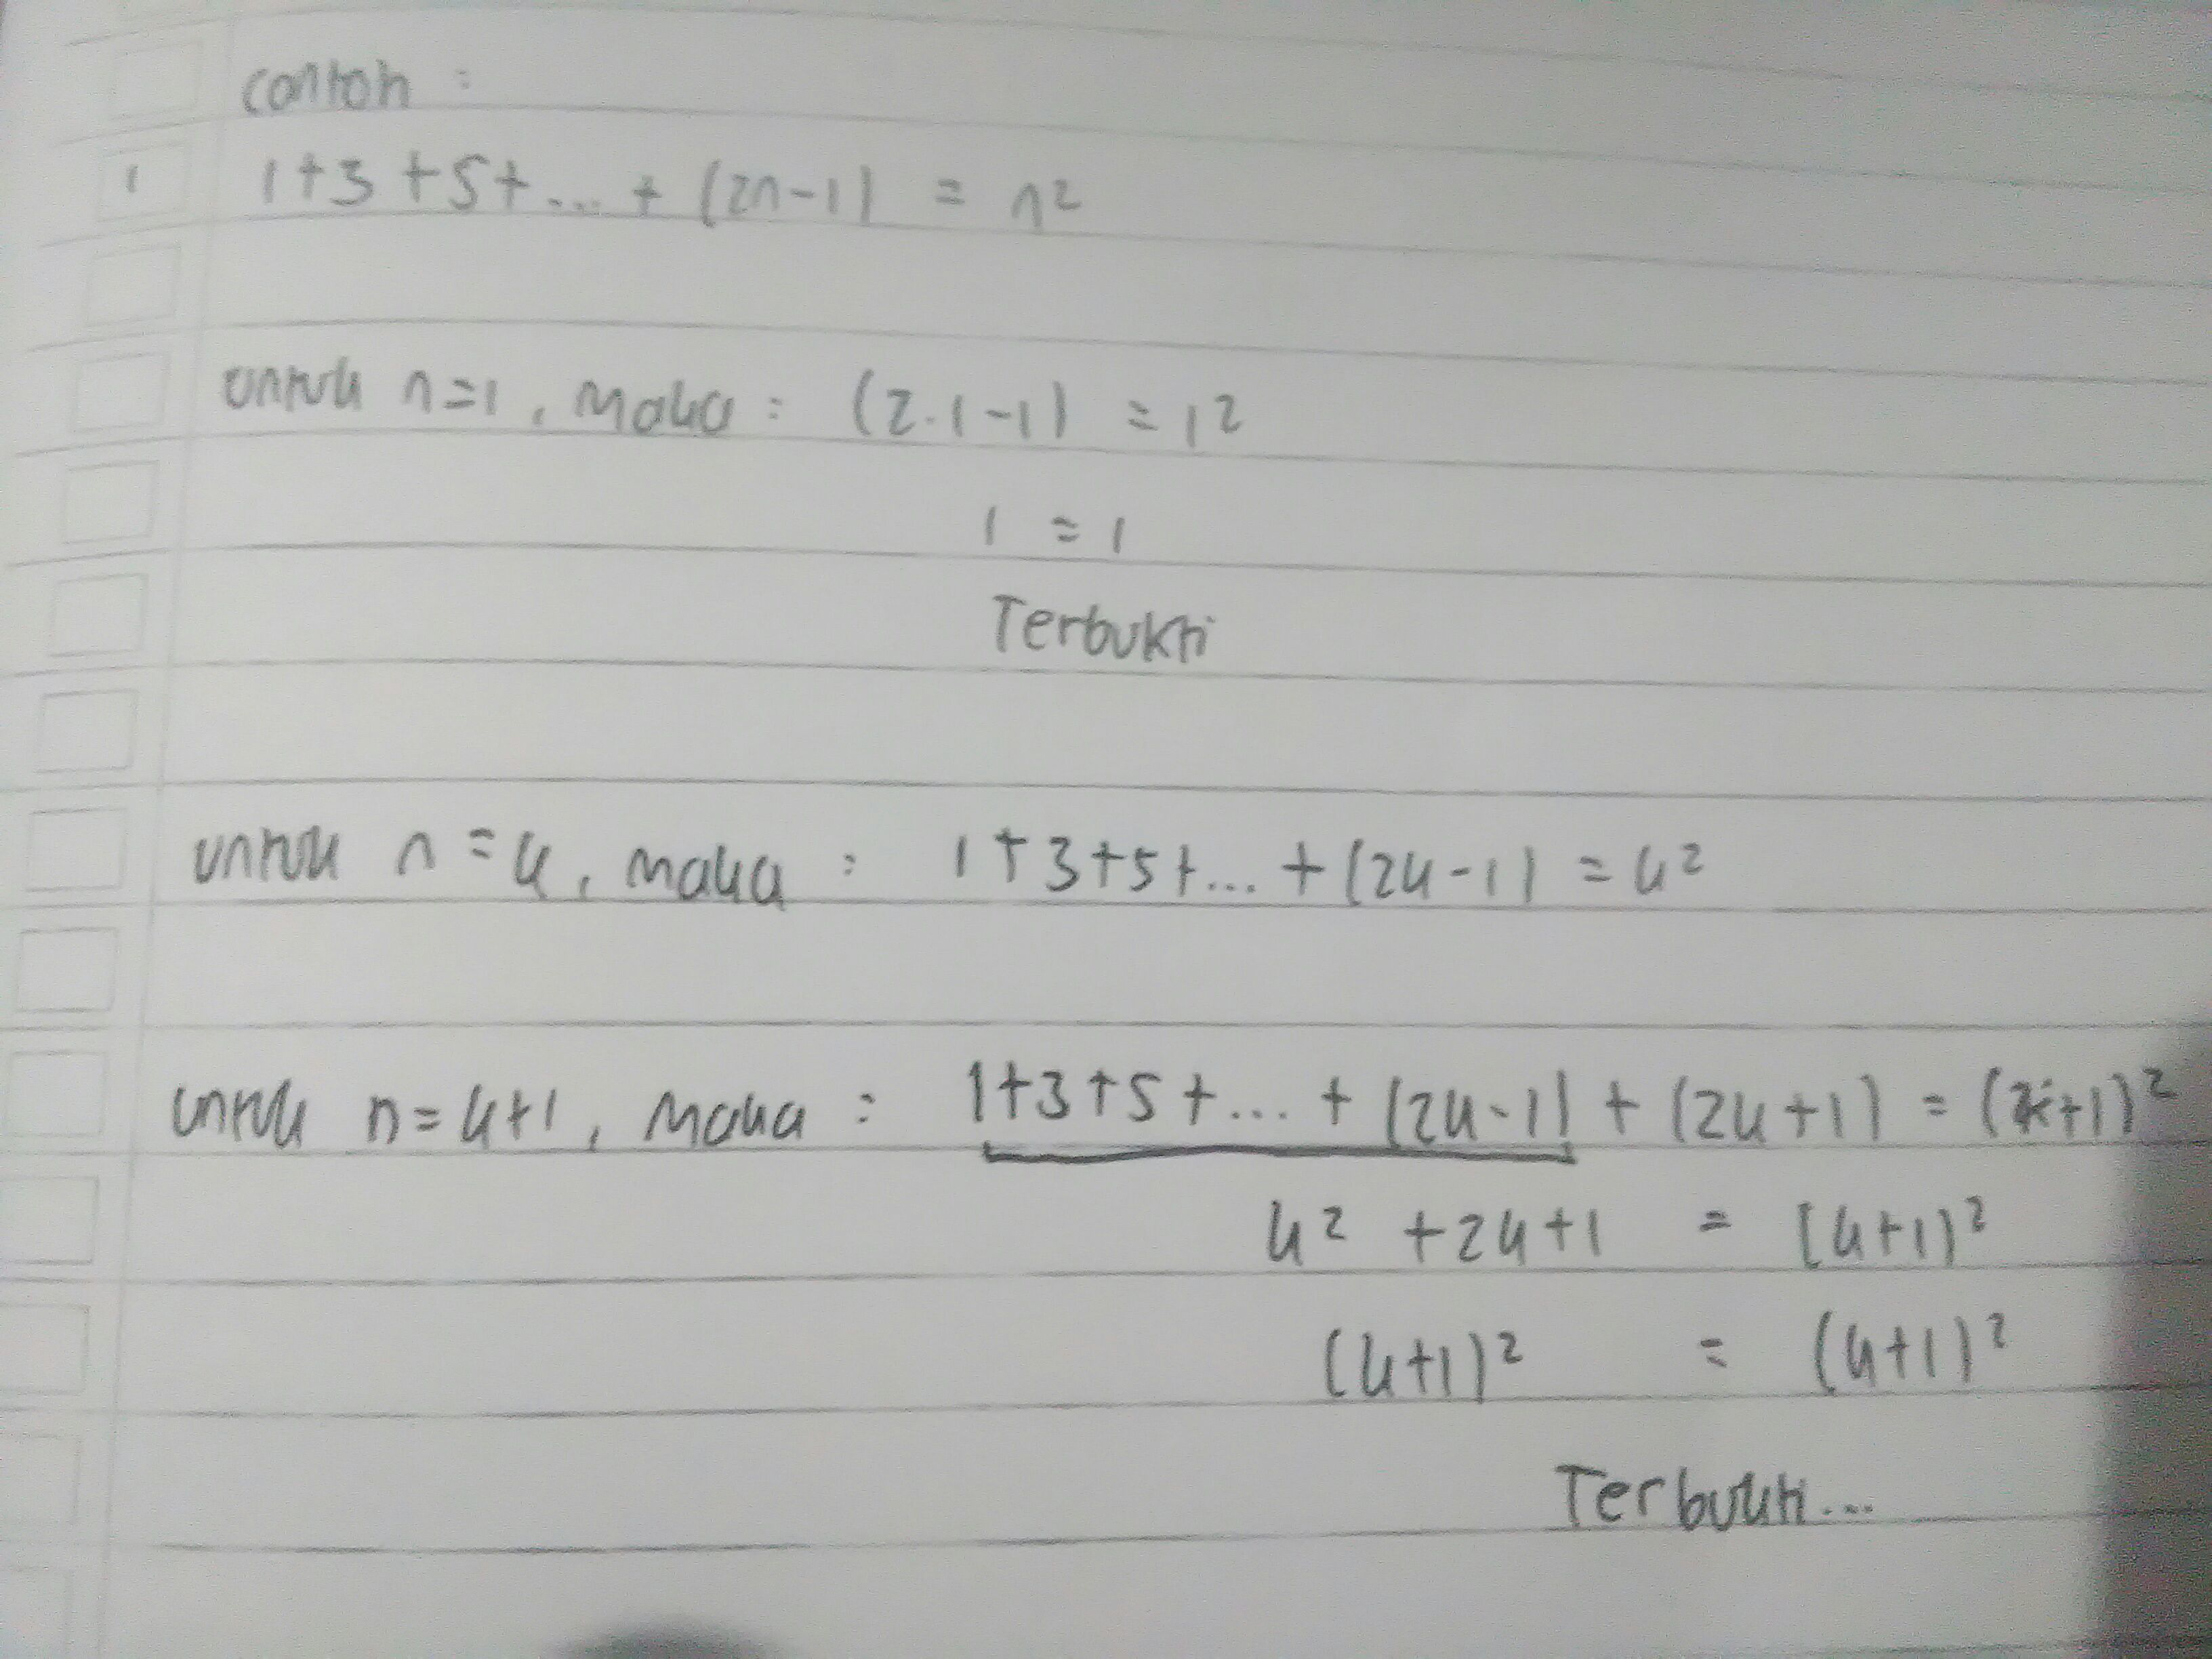 contoh :
1 1+3+5+... + (2n-1) = n²
untuk n=1, maka : (2.1-1) = 1²
1 = 1
Terbukti
untuk n=k, maka : 1+3+5+... + (2k-1) = k²
untuk n=k+1, maka : 1+3+5+... + (2k-1) + (2k+1) = (k+1)²
k² +2k+1 = (k+1)²
(k+1)² = (k+1)²
Terbukti...